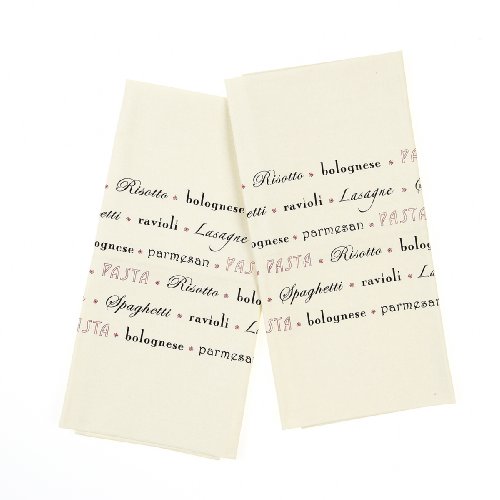 Risotto * bolognese
ghetti * ravioli * Lasagne
bolognese * parmesan * P
PASTA * Risotto *
Spaghetti * ravioli * L
PASTA * bolognese * parmesan
Risotto * bolognese * PASTA
ghetti * ravioli * Lasagne *
bolognese * parmesan * PAS
PASTA * Risotto * bologn
Spaghetti * ravioli * La
PASTA * bolognese * parmesan